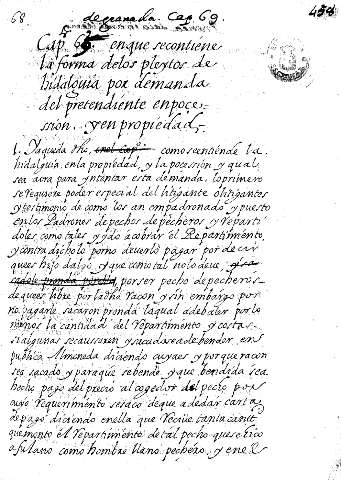 68 de granada. Cap. 69. 458
Cap. 69 en que se contiene
la forma de los pleytos de
hidalguia por demanda
del pretendiente en poce-
ssion, y en propiedad,
1. Ya queda dho, como se entiende la
hidalguia en la propiedad, y la pocession y qual
sea aora para yntentar esta demanda, lo primero
se requiere poder especial del litigante o litigantes
y testimonio de como los an empadronado y puesto
en los Padrones de pechos de pecheros y Reparti
dolos como tales y ydo a cobrar el Repartimiento,
y contradicholo por no deverlo pagar por decir
que es hijo dalgo, y que como tal no lo deve,
por ser pecho de pecheros
de que es libre por la dha racon y sin embargo por
no pagarle, sacaron prenda la qual a de baler por lo
menos la cantidad del Repartimiento y costas
publica Almoneda diciendo cuya es y porque racon
sea sacado y para que se bende, y que bendida sea
hecho pago del precio al cogedor del pecho por
cuyo requerimiento se saco de que a de dar carta
de pago diciendo en ella que Recive tanta cant
que monto el Repartimiento de tal pecho que se hico
a fulano como hombre llano pechero, y en el